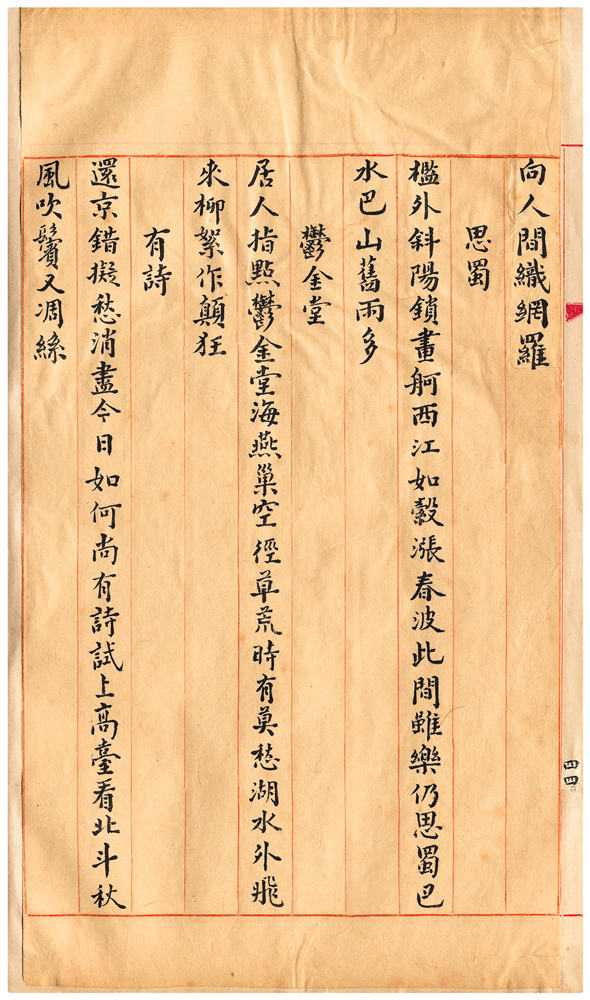 向人間織網羅
思蜀
檻外斜陽鎖畫舸西江如縠漲春波此間雖樂仍思蜀巴
水巴山舊雨多
鬱金堂
居人指點鬱金堂海燕巢空徑草荒時有莫愁湖水外飛
來柳絮作顛狂
有詩
還京錯擬愁消盡今日如何尚有詩試上高臺看北斗秋
風吹鬢又凋絲
四四